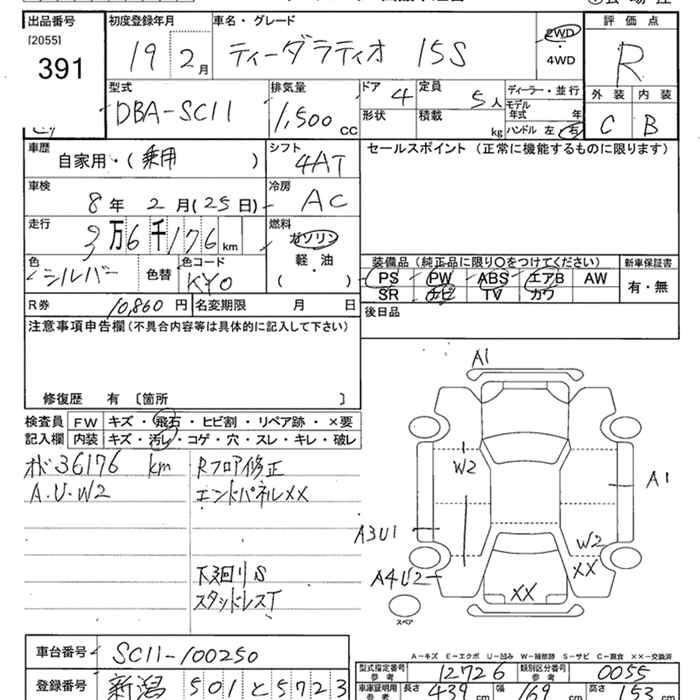 出品番号
[2055]
391
初度登録年月
19 2月
車名・グレード
ティーダラティオ 15S
2WD
・
4WD
評価点
R
型式
DBA-SC11
排気量
1,500 cc
ドア 4
定員 5人
形状
積載 kg
ディーラー・並行
モデル年式 年
ハンドル 左・右
外装 内装
C B
車歴
自家用・(乗用)
シフト
4AT
セールスポイント (正常に機能するものに限ります)
車検
8年 2月(25日)
冷房
AC
走行
3万6千176km
燃料
ガソリン
軽・油
( )
色
シルバー
色替
色コード
KY0
装備品(純正品に限り○をつけてください)
新車保証書
PS PW ABS エアB AW
SR ナビ TV カワ
有・無
R券 10,860円
名変期限 月 日
後日品
注意事項申告欄(不具合内容等は具体的に記入して下さい)
修復歴 有 〔箇所 〕
検査員 FW キズ・飛石・ヒビ割・リペア跡・×要
記入欄 内装 キズ・汚レ・コゲ・穴・スレ・キレ・破レ
36176 km
A.U.W2
Rフロア修正
エンドパネルXX
下廻りS
スタッドレスT
A1
W2
A1
A3U1
W2
XX
A4U2
XX
スペア
A-キズ E-エクボ U-凹み W-補修跡 S-サビ C-腐食 ××-交換済
車台番号 SC11-100250
型式指定番号 参考 12726
類別区分番号 参考 0055
登録番号 新潟 501 と 5723
車庫証明用 参考 長さ 439cm 幅 169cm 53cm